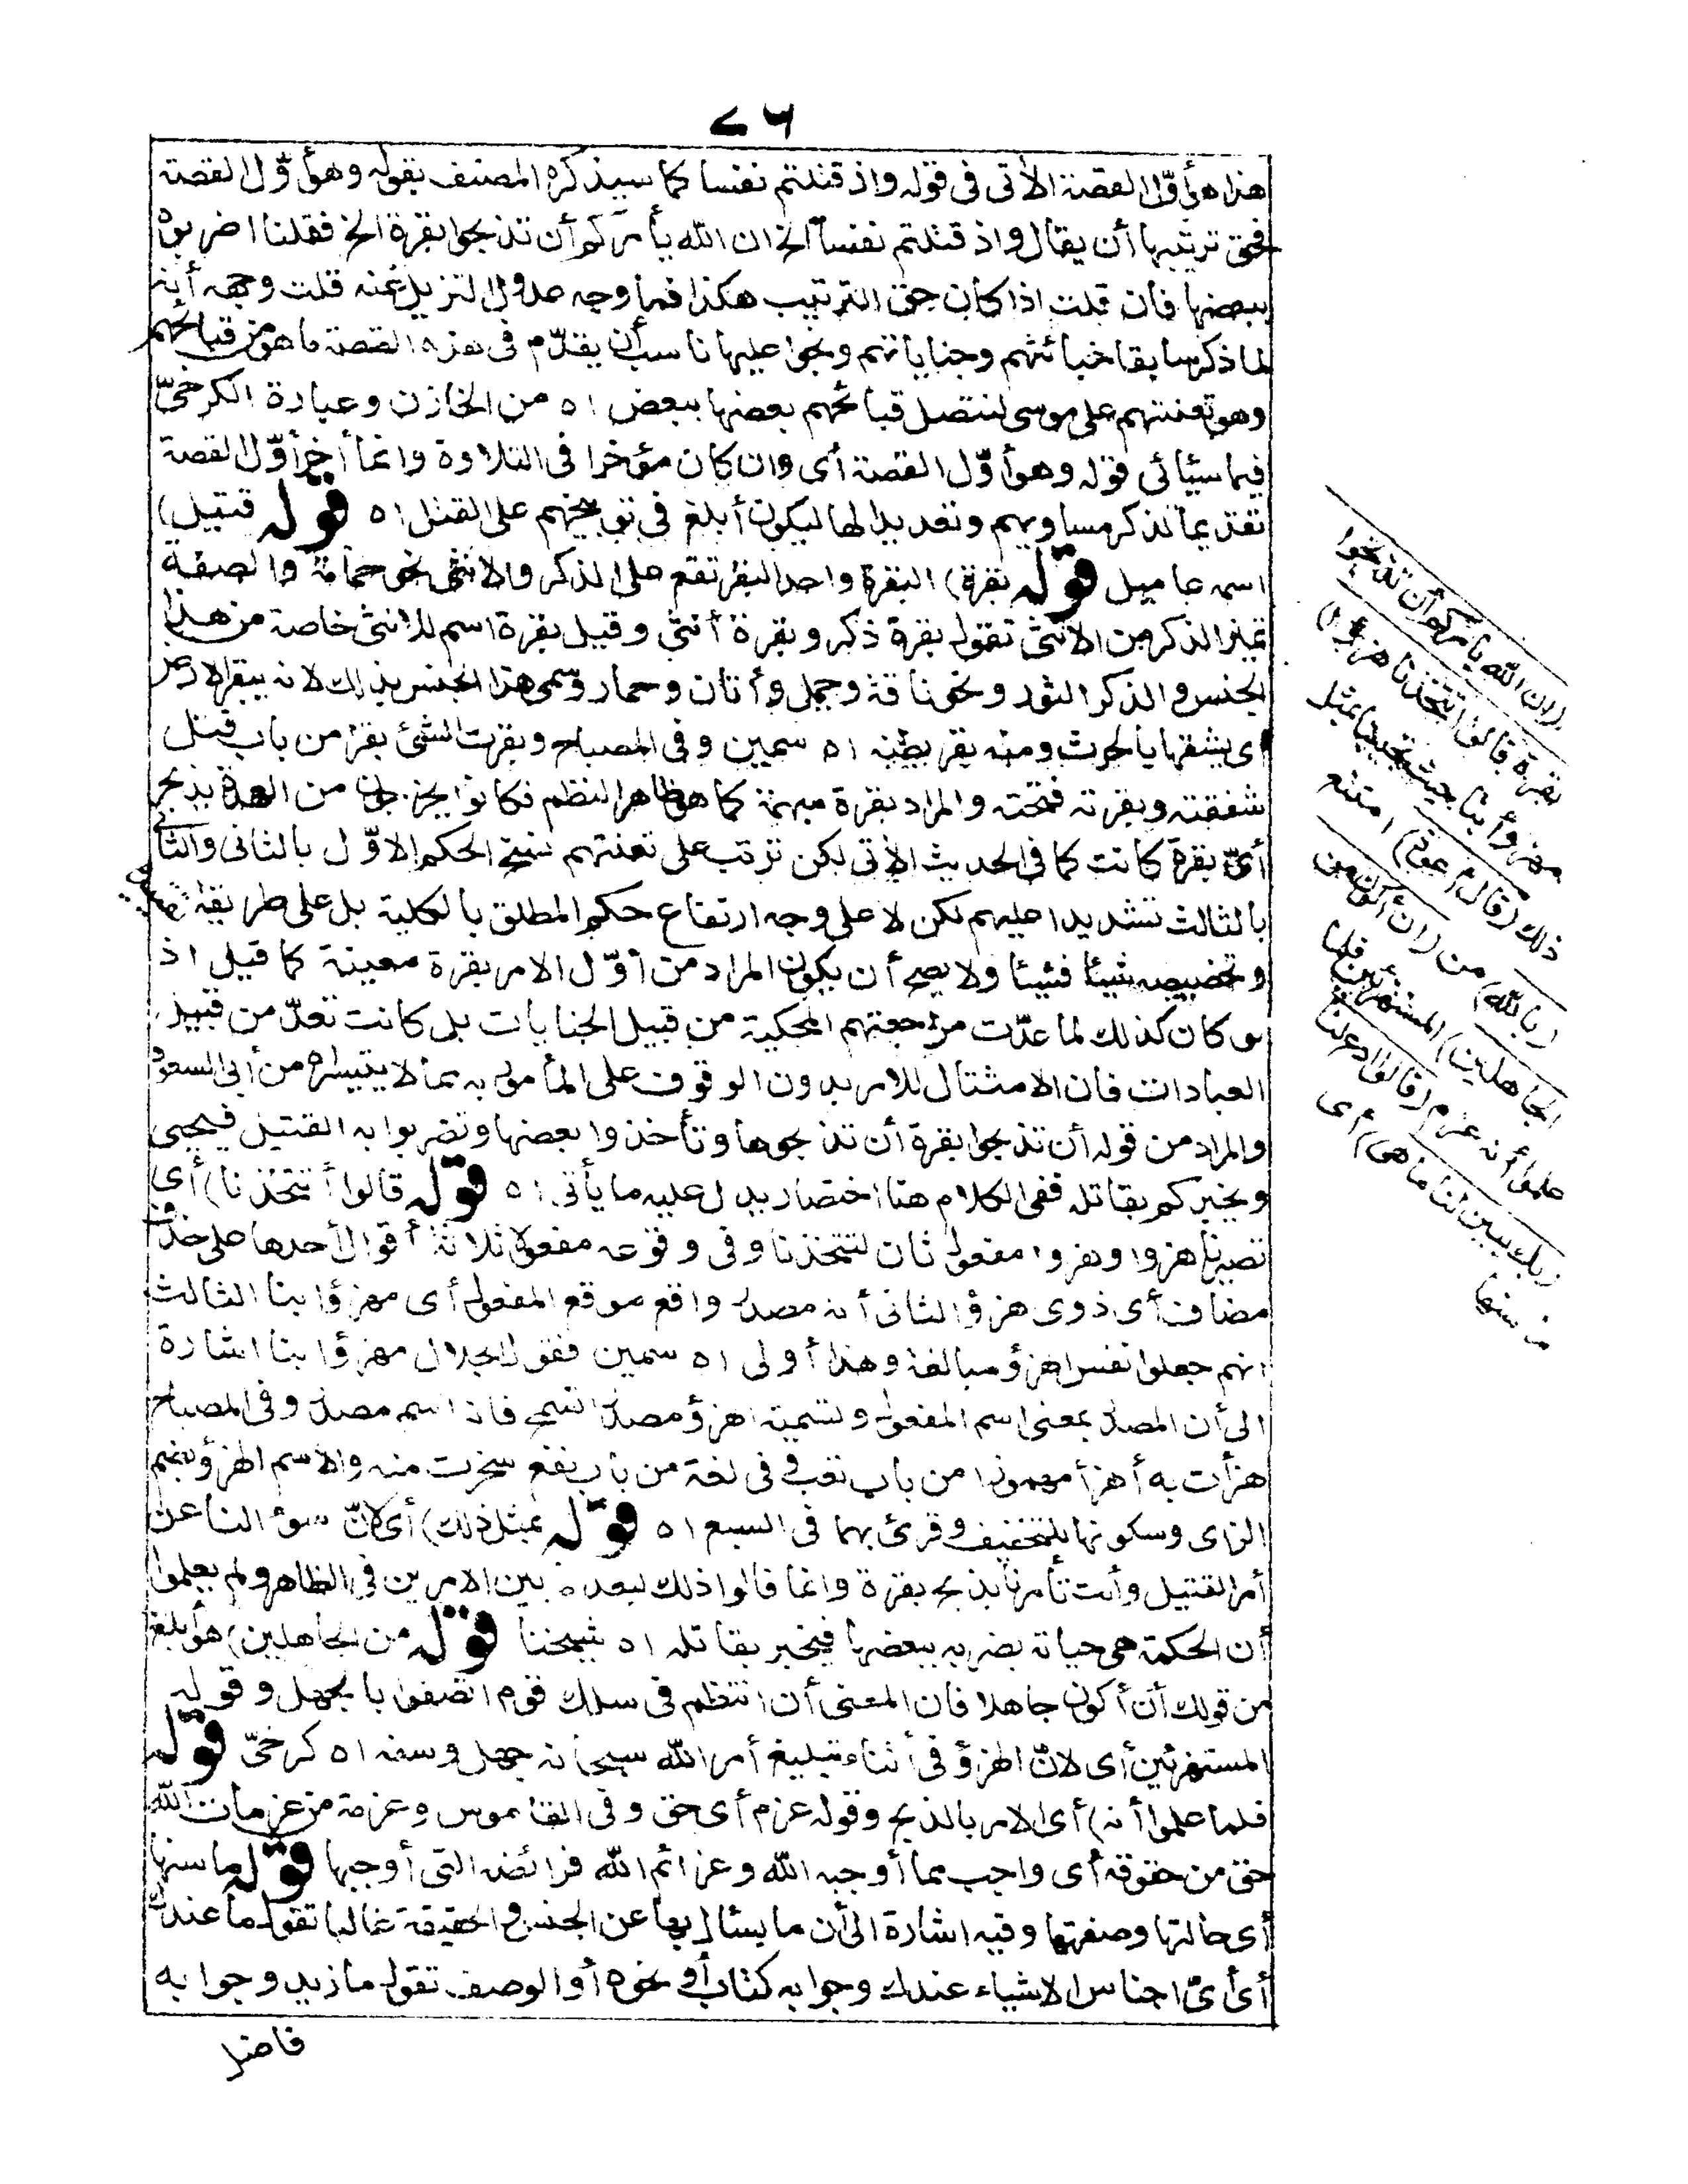 ٧٦
هذا هو أوّل القصة الآتى فى قوله واذ قتلتم نفسا كما سيذكره المصنف بقوله وهو أوّل القصة
فحق ترتيبها أن يقال واذ قتلتم نفسا الخ ان الله يأمركم أن تذبحوا بقرة الخ فقلنا اضربوه
ببعضها فان قلت اذا كان حق الترتيب هكذا فما وجه عدول التنزيل عنه قلت وجهه أنه
لما ذكر سابقا خبائثهم وجناياتهم وبخوا عليها ناسب أن يقدّم فى هذه القصة ما هو من قبائحهم
وهو تعنتهم على موسى لتتصل قبائحهم بعضها ببعض اه من الخازن وعبارة الكرخىّ
فيما سيأتى قوله وهو أوّل القصة أى وان كان مؤخرا فى التلاوة وانما أخر أوّل القصة
تقديما لذكر مساويهم وتعديدا لها ليكون أبلغ فى توبيخهم على القتل اه قوله قتيل)
اسمه عاميل قوله بقرة) البقرة واحد البقر تقع على الذكر والانثى نحو حمامة والصفة
تميز الذكر من الأنثى تقول بقرة ذكر وبقرة أنثى وقيل بقرة اسم للانثى خاصة من هذا
الجنس والذكر الثور ونحو ناقة وجمل وأتان وحمار وسمى هذا الجنس بذلك لانه يبقر الارض
أى يشقها بالحرث ومنه بقر بطنه اه سمين وفى المصباح وبقرت الشئ بقرا من باب قتل
شققته وبقرته فتحته والمراد بقرة مبهمة كما هو ظاهر النظم فكانوا يخرجون من العهدة بذبح
أىّ بقرة كانت كما فى الحديث الآتى لكن ترتب على تعنتهم نسخ الحكم الاوّل بالثانى والثانى
بالثالث تشديدا عليهم لكن لا على وجه ارتفاع حكم المطلق بالكلية بل على طريقة تقييده
وتخصيصه شيئا فشيئا ولا يصح أن يكون المراد من أوّل الامر بقرة معينة كما قيل اذ
لو كان كذلك لما عدّت مراجعتهم المحكية من قبيل الجنايات بل كانت تعدّ من قبيل
العبادات فان الامتثال للامر بدون الوقوف على المأمور به مما لا يتيسر اه من أبى السعود
والمراد من قوله أن تذبحوا بقرة أن تذبحوها وتأخذوا بعضها وتضربوا به القتيل فيحيى
ويخبركم بقاتله ففى الكلام هنا اختصار يدل عليه ما يأتى اه قوله قالوا أتتخذنا) أى
تصيرنا هزوا وهزوا مفعول ثان لتتخذنا وفى وقوعه مفعولا ثلاثة أقوال أحدها على حذف
مضاف أى ذوى هزؤ الثانى أنه مصدر واقع موقع المفعول أى مهزؤا بنا الثالث
انهم جعلوا نفس الهزؤ مبالغة وهذا أولى اه سمين فقول الجلال مهزؤا بنا اشارة
الى أن المصدر بمعنى اسم المفعول وتسمية الهزؤ مصدرا تسمح فانه اسم مصدر وفى المصباح
هزأت به أهزأ مهموزا من باب تعب وفى لغة من باب نفع سخرت منه والاسم الهزؤ بضم
الزاى وسكونها بالتخفيف وقرئ بهما فى السبع اه قوله بمثل ذلك) أى لانّ سؤالنا عن
أمر القتيل وأنت تأمرنا بذبح بقرة وانما قالوا ذلك لبعد ما بين الامرين فى الظاهر ولم يعلموا
أن الحكمة هى حياته بضربه ببعضها فيخبر بقاتله اه شيخنا قوله من الجاهلين) هو أبلغ
من قولك أن أكون جاهلا فان المعنى أن انتظم فى سلك قوم اتصفوا بالجهل وقوله
المستهزئين أى لانّ الهزؤ فى أثناء تبليغ أمر الله سبحانه جهل وسفه اه كرخىّ قوله
فلما علموا أنه) أى الامر بالذبح وقوله عزم أى حق وفى القاموس وعزمة من عزمات الله
حق من حقوقه أى واجب مما أوجبه الله وعزائم الله فرائضه التى أوجبها قوله ما سنها
أى حالتها وصفتها وفيه اشارة الى أن ما يسئال بها عن الجنس والحقيقة غالبا تقول ما عندك
أى أىّ اجناس الاشياء عندك وجوابه كتاب أو نحوه أو الوصف تقول ما زيد وجوابه
فاضل
(ان الله يأمركم أن تذبحوا
بقرة قالوا أتتخذنا هزؤا)
مهزوأ بنا حيث تجيبنا بمثل
ذلك (قال أعوذ) امتنع
(بالله) من (ان أكون من
الجاهلين) المستهزئين فلما
علموا أنه عزم (قالوا ادع لنا
ربك يبين لنا ما هى) أى
ما سنها